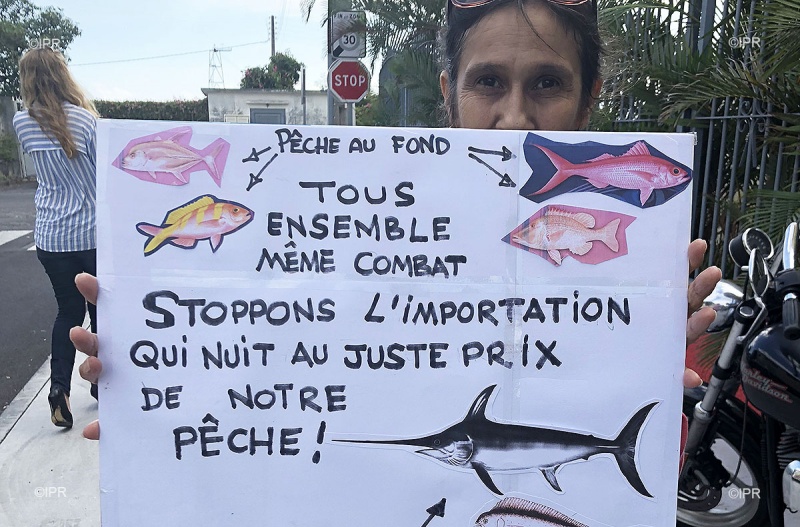 ©IPR
©IPR
30
STOP
PÊCHE AU FOND
TOUS
ENSEMBLE
MÊME COMBAT
STOPPONS L'IMPORTATION
QUI NUIT AU JUSTE PRIX
DE NOTRE
PÊCHE!
Harley-Davidson
©IPR
©IPR